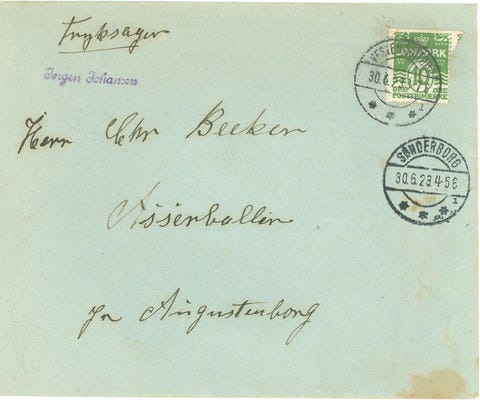 Tryksager
Jørgen Johansen
DANMARK
10
ØRE ØRE
POSTFRIMÆRKE
30.6.23
SØNDERBORG
30.6.23.4-5E
1
Herr Chr Becken
Asserballin
pr Augustenborg